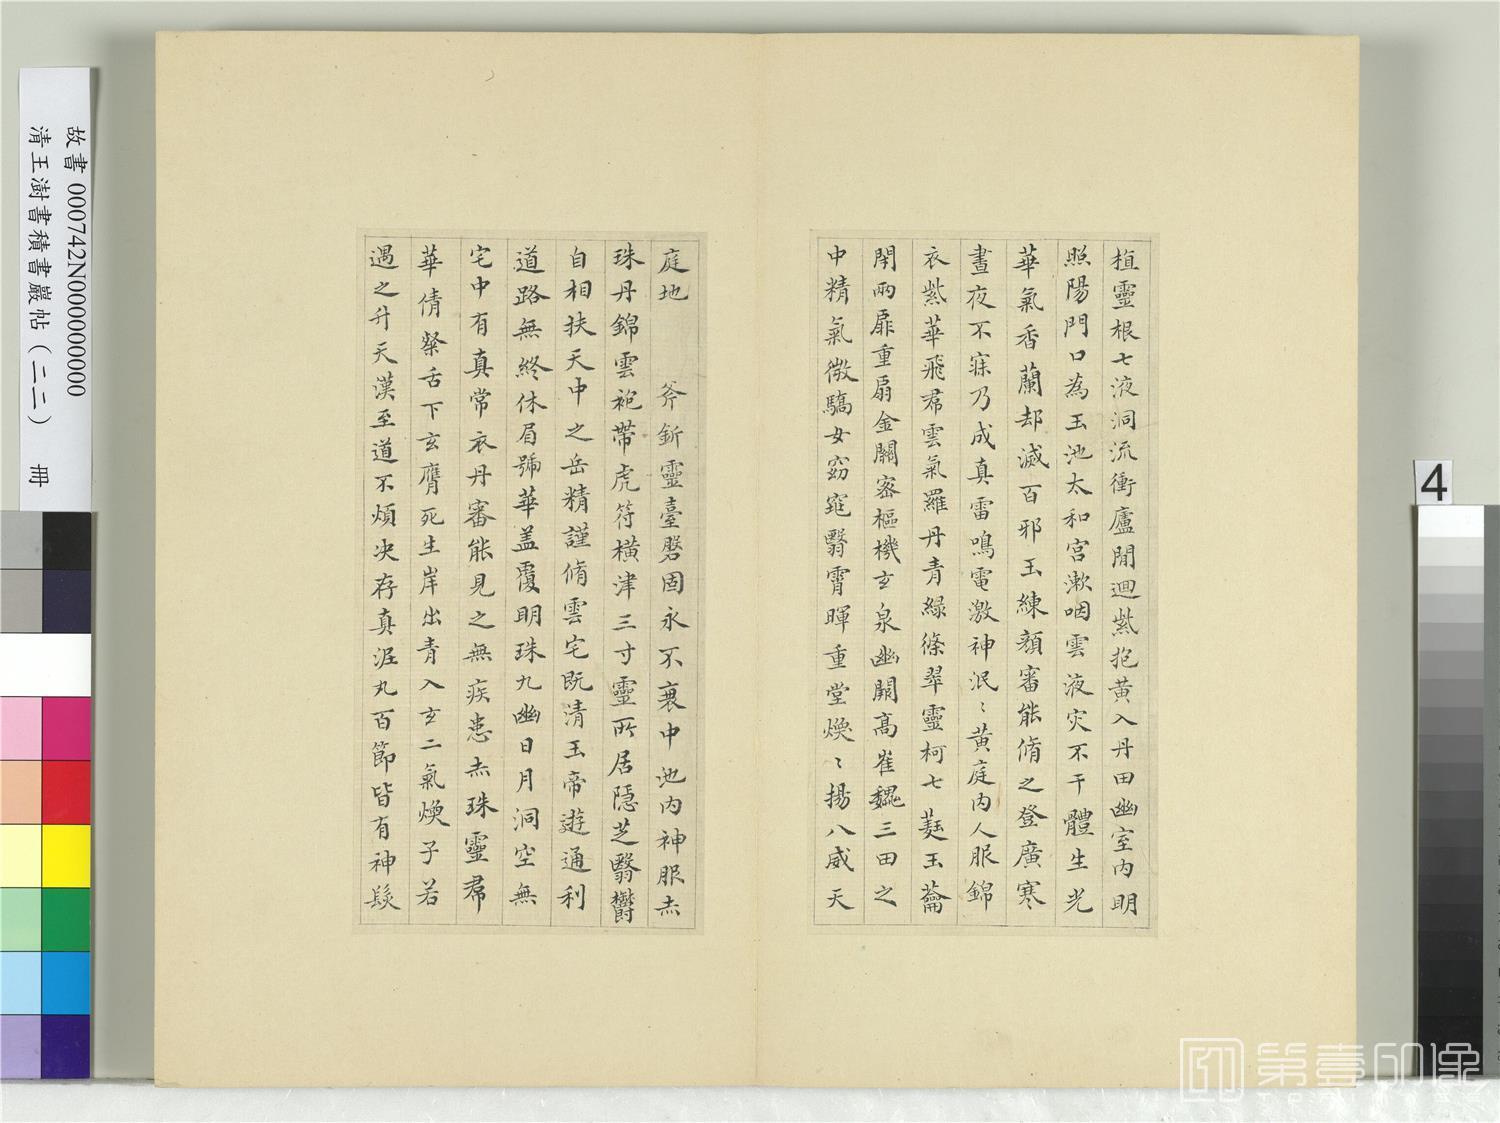 植靈根七液洞流衝廬閒迴紫抱黃入丹田幽室內明
照陽門口為玉池太和宮漱咽雲液灾不干體生光
華氣香蘭却滅百邪玉練顏審能脩之登廣寒
晝夜不寐乃成真雷鳴電激神泯〻黃庭內人服錦
衣紫華飛帬雲氣羅丹青綠條翠靈柯七蕤玉蘥
閇兩扉重扇金關密樞機玄泉幽闕高崔巍三田之
中精氣微驕女窈窕翳霄暉重堂煥〻揚八威天
庭地 斧釿靈臺磐固永不衰中池內神服赤
珠丹錦雲袍帶虎符橫津三寸靈所居隱芝翳鬱
自相扶天中之岳精謹脩雲宅既清玉帝遊通利
道路無終休眉號華盖覆明珠九幽日月洞空無
宅中有真常衣丹審能見之無疾患赤珠靈帬
華倩粲舌下玄膺死生岸出青入玄二氣煥子若
遇之升天漢至道不煩决存真泥丸百節皆有神髮
故書 000742N000000000
清王澍書積書巖帖(二二) 冊
4
第壹印像